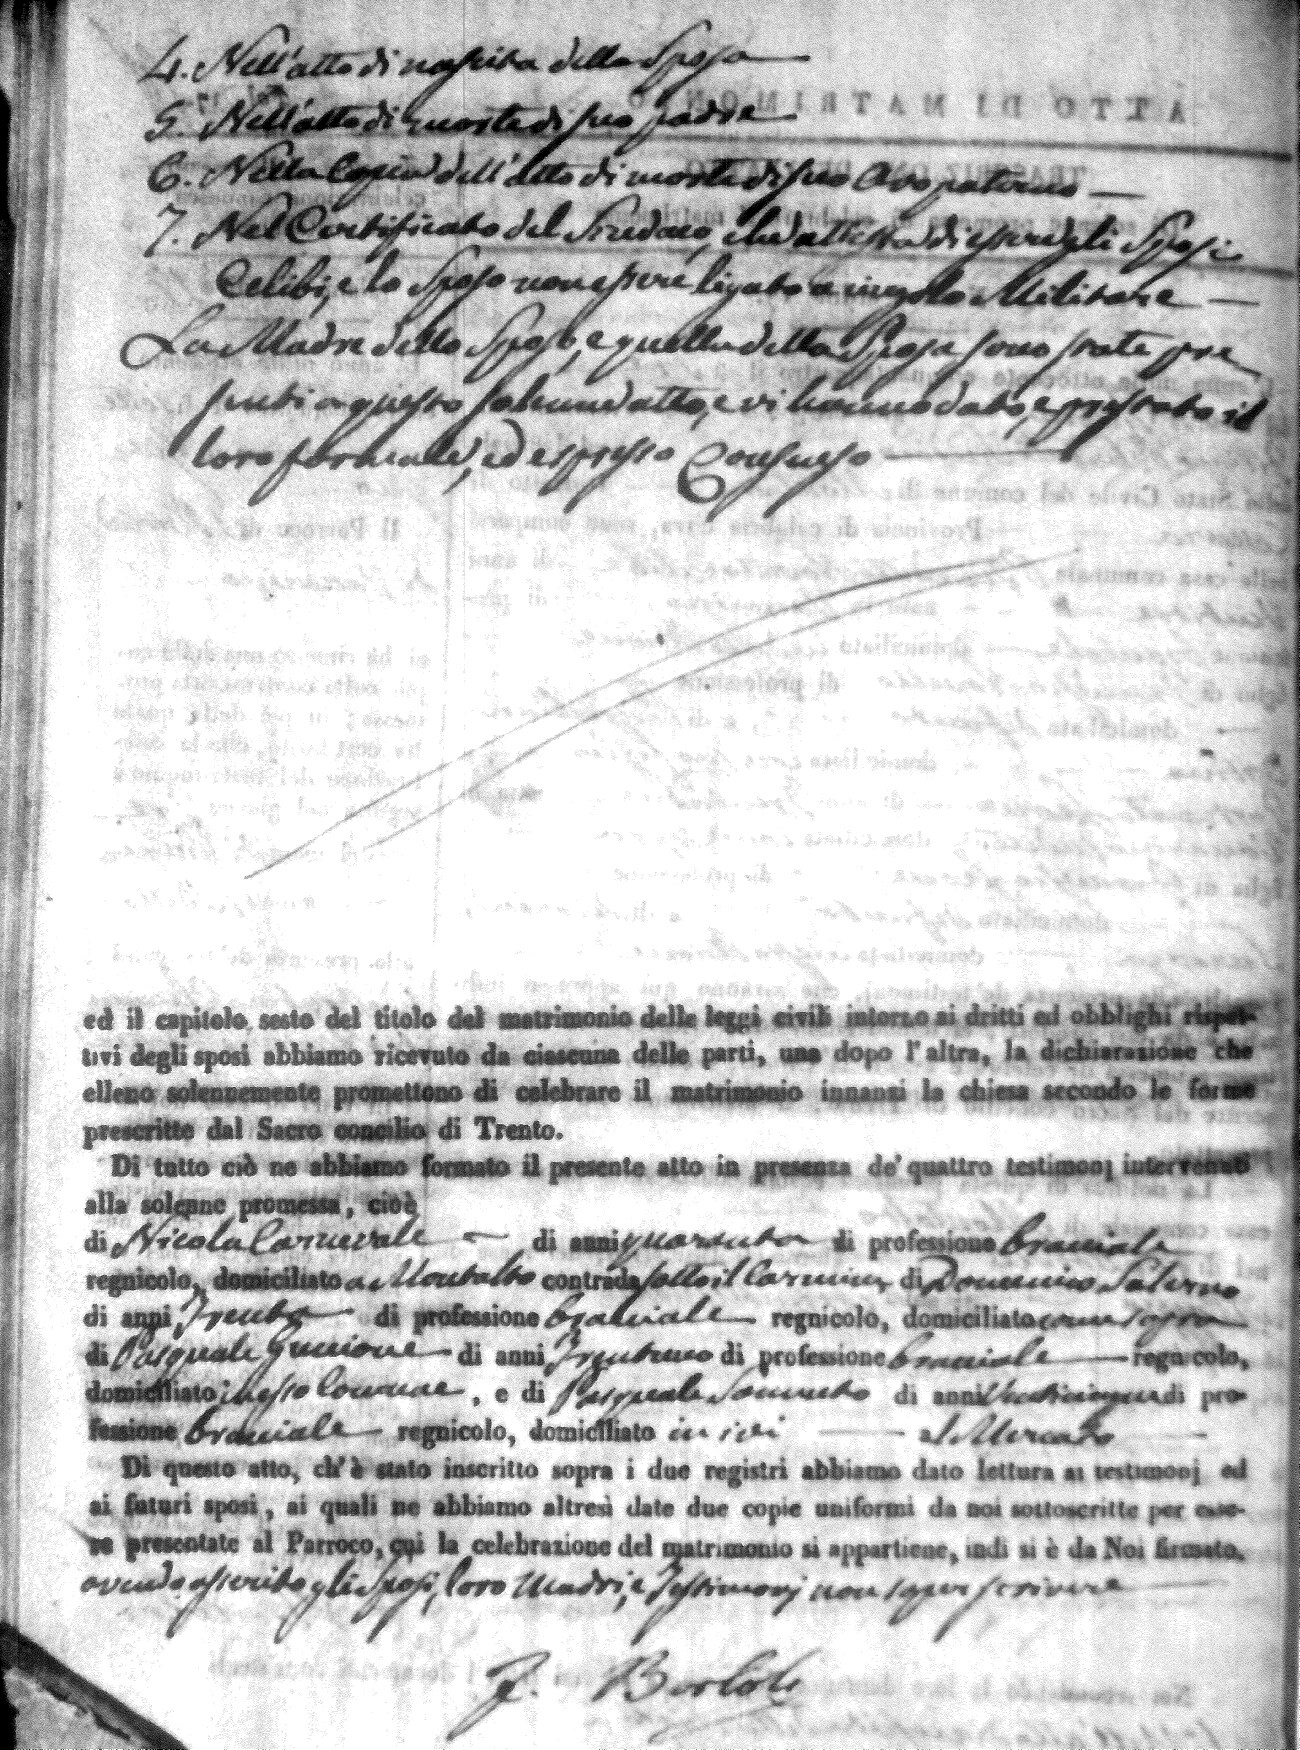 4. Nell'atto di nascita della Sposa
5. Nell'atto di morte di suo padre
6. Nella Copia dell'atto di morte di suo Avo paterno
7. Nel Certificato del Sindaco, che attesta di essere gli Sposi
Celibi, e lo Sposo non essere ligato a vincolo Militare
La Madre dello Sposo, e quella della Sposa sono state pre
senti a questo solenne atto, e vi hanno dato, e prestato il
loro formale, ed espresso Consenso
ed il capitolo sesto del titolo del matrimonio delle leggi civili intorno ai dritti ed obblighi rispet-
tivi degli sposi abbiamo ricevuto da ciascuna delle parti, una dopo l'altra, la dichiarazione che
elleno solennemente promettono di celebrare il matrimonio innanzi la chiesa secondo le forme
prescritte dal Sacro concilio di Trento.
Di tutto ciò ne abbiamo formato il presente atto in presenza de' quattro testimonj intervenuti
alla solenne promessa, cioè
di Nicola Carnevale di anni quaranta di professione bracciale
regnicolo, domiciliato a Montalto contrada sotto il Carmine, di Domenico Salerno
di anni Trenta di professione bracciale regnicolo, domiciliato come sopra
di Pasquale di anni Trentuno di professione bracciale regnicolo,
domiciliato in esso Comune, e di Pasquale di anni Venticinque di pro-
fessione bracciale regnicolo, domiciliato in ivi al Mercato
Di questo atto, ch'è stato inscritto sopra i due registri abbiamo dato lettura ai testimonj ed
ai futuri sposi, ai quali ne abbiamo altresì date due copie uniformi da noi sottoscritte per esse-
re presentate al Parroco, cui la celebrazione del matrimonio si appartiene, indi si è da Noi firmato,
avendo asserito gli Sposi, loro Madri, e Testimonj non saper scrivere